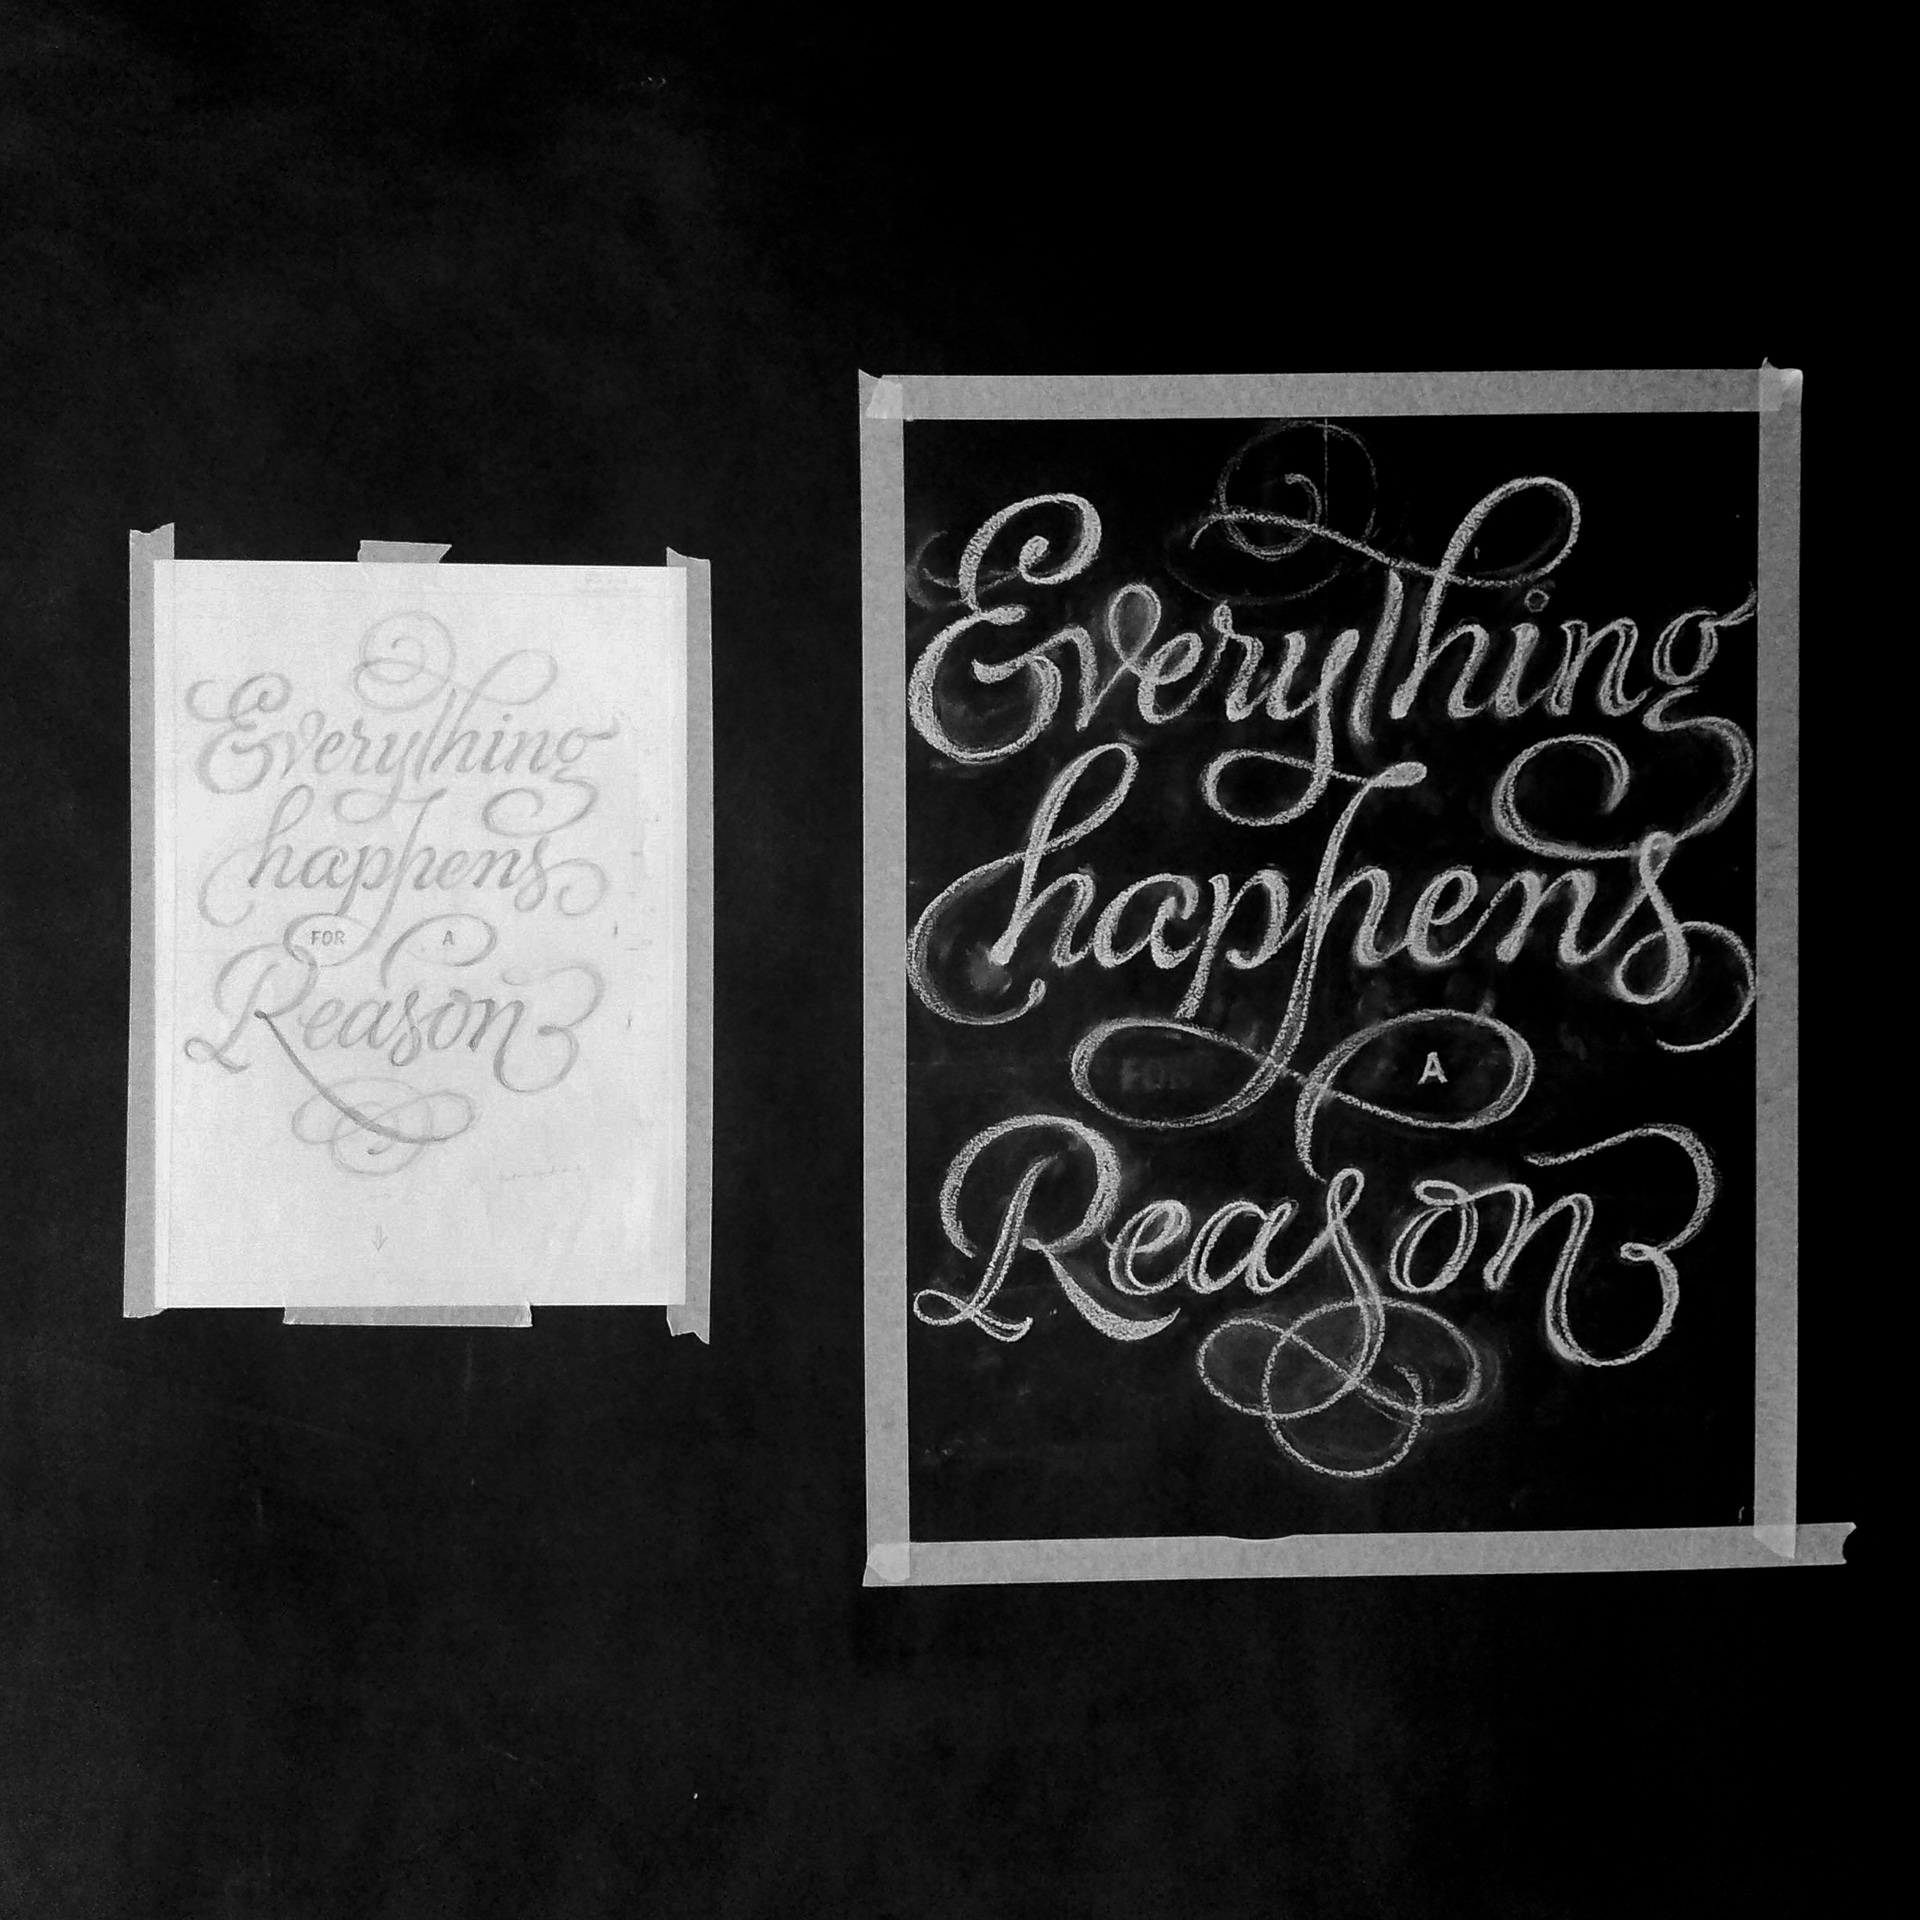 Everything
happens
FOR A
Reason
Everything
happens
FOR A
Reason